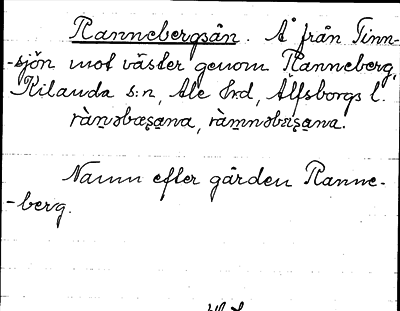 Rannebergsån. Å från Tinn-
-sjön mot väster genom Ranneberg,
Kilanda s:n, Ale Hrd, Älfsborgs l.
ràn̥əbæʂa̲na, ràm̥nəbæʂa̲na.
Namn efter gården Ranne-
-berg.